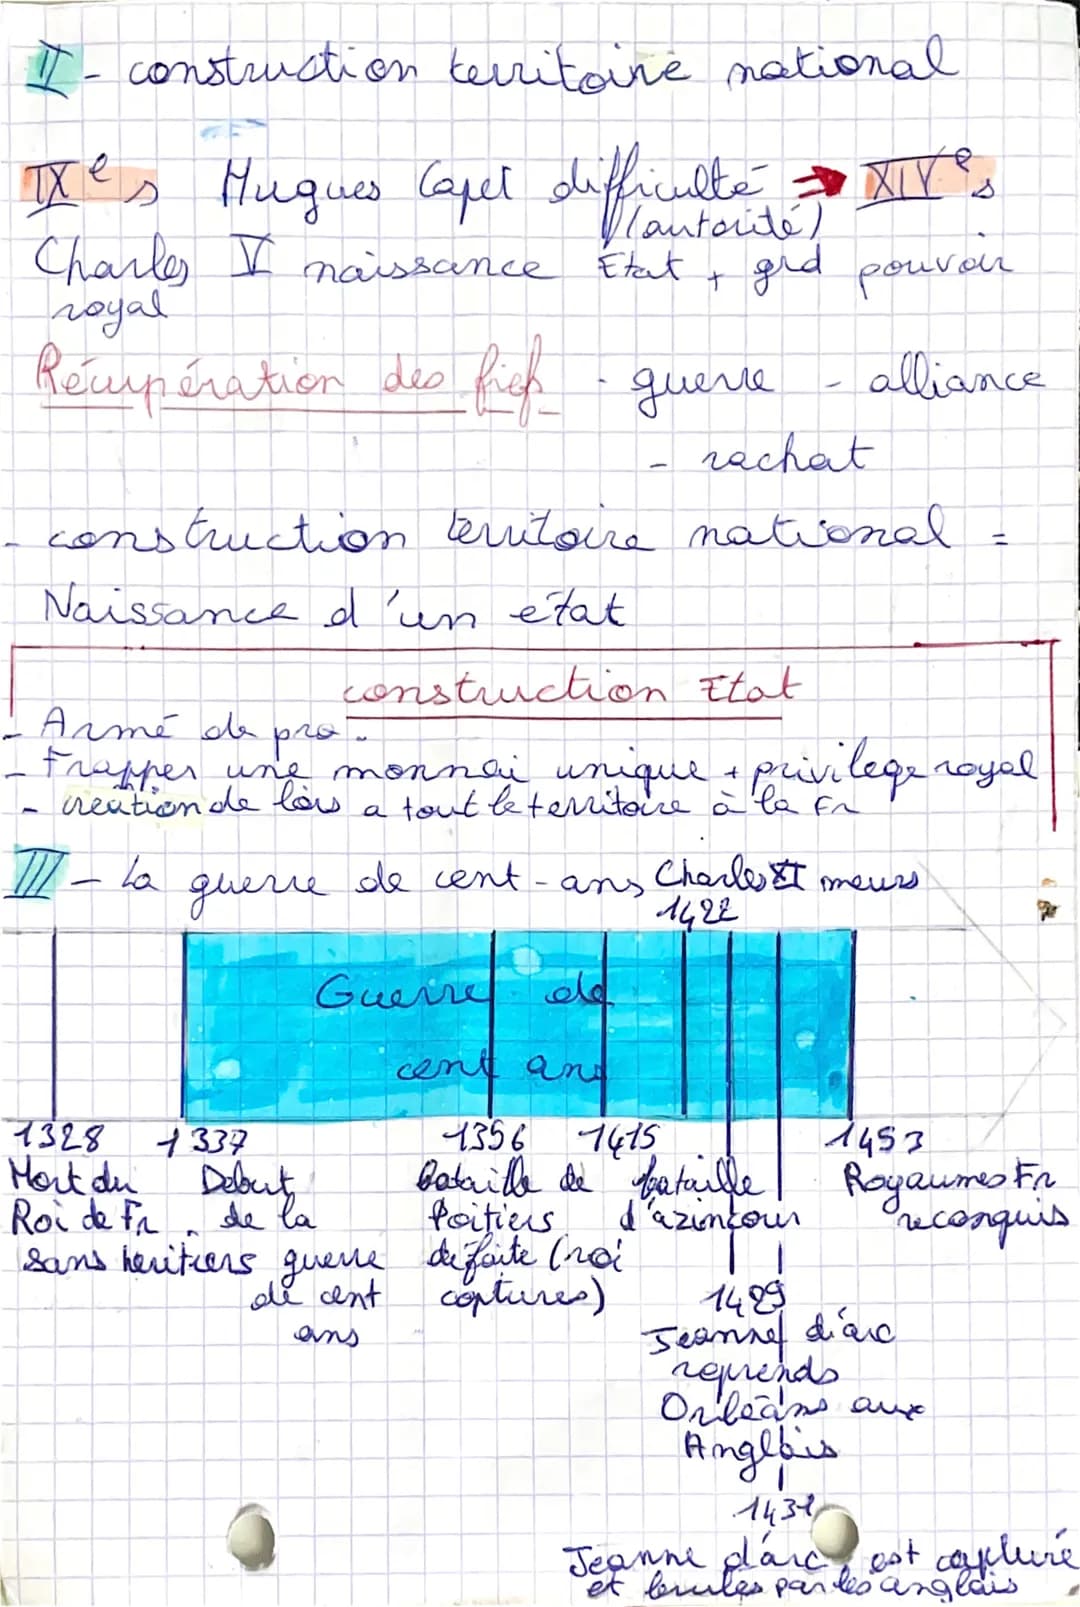 II - construction territoire national
IXe s Hugues Capet difficulté → XIVe s
(autorité)
Charles V naissance Etat + grd pouvoir
royal
Récupération des fiefs - guerre - alliance
- rachat
- construction territoire national =
Naissance d'un état
construction Etat
- Armé de pro.
- Frapper une monnai unique + privilege royal
- création de lois a tout le territoire à la Fr
III - La guerre de cent-ans Charles VI meurs
1422
Guerre de
cent ans
1328 1337 1356 1415 1453
Mort du Debut bataille de bataille Royaumes Fr
Roi de Fr. de la Poitiers d'azincour reconquis
sans heritiers guerre défaite (roi
de cent captures) 1429
ans Jeanne d'arc
reprends
Orléans aux
Anglais
1431
Jeanne d'arc est capturé
et brules par les anglais